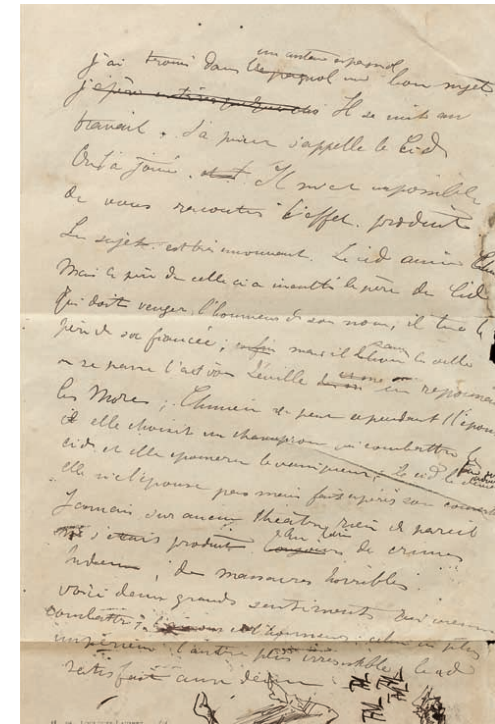 un auteur espagnol
j'ai trouvé dans l'espagnol un bon sujet
j'espère Il se mit au
travail. Sa pièce s'appelle le Cid
On l'a jouée. Il m'est impossible
de vous raconter l'effet produit
Le sujet est bien émouvant. Le cid aime
Mais le père de celle ci a insulté le père du Cid
qui doit venger l'honneur de son nom, il tue le
père de sa fiancée; mais il sauve la ville
où se passe l'action Séville en repoussant
les Mores; Chimène ne peut cependant l'épouser
et elle choisit un champion qui combattra le
cid et elle épousera le vainqueur; Le cid
elle n'épouse pas mais
Jamais sur aucun théâtre rien de pareil
ne s'était produit de crimes
de massacres horribles.
voici deux grands sentiments qui viennent
combattre; l'honneur; plus
impérieux l'autre plus irrésistible, le cid
satisfait aux deux